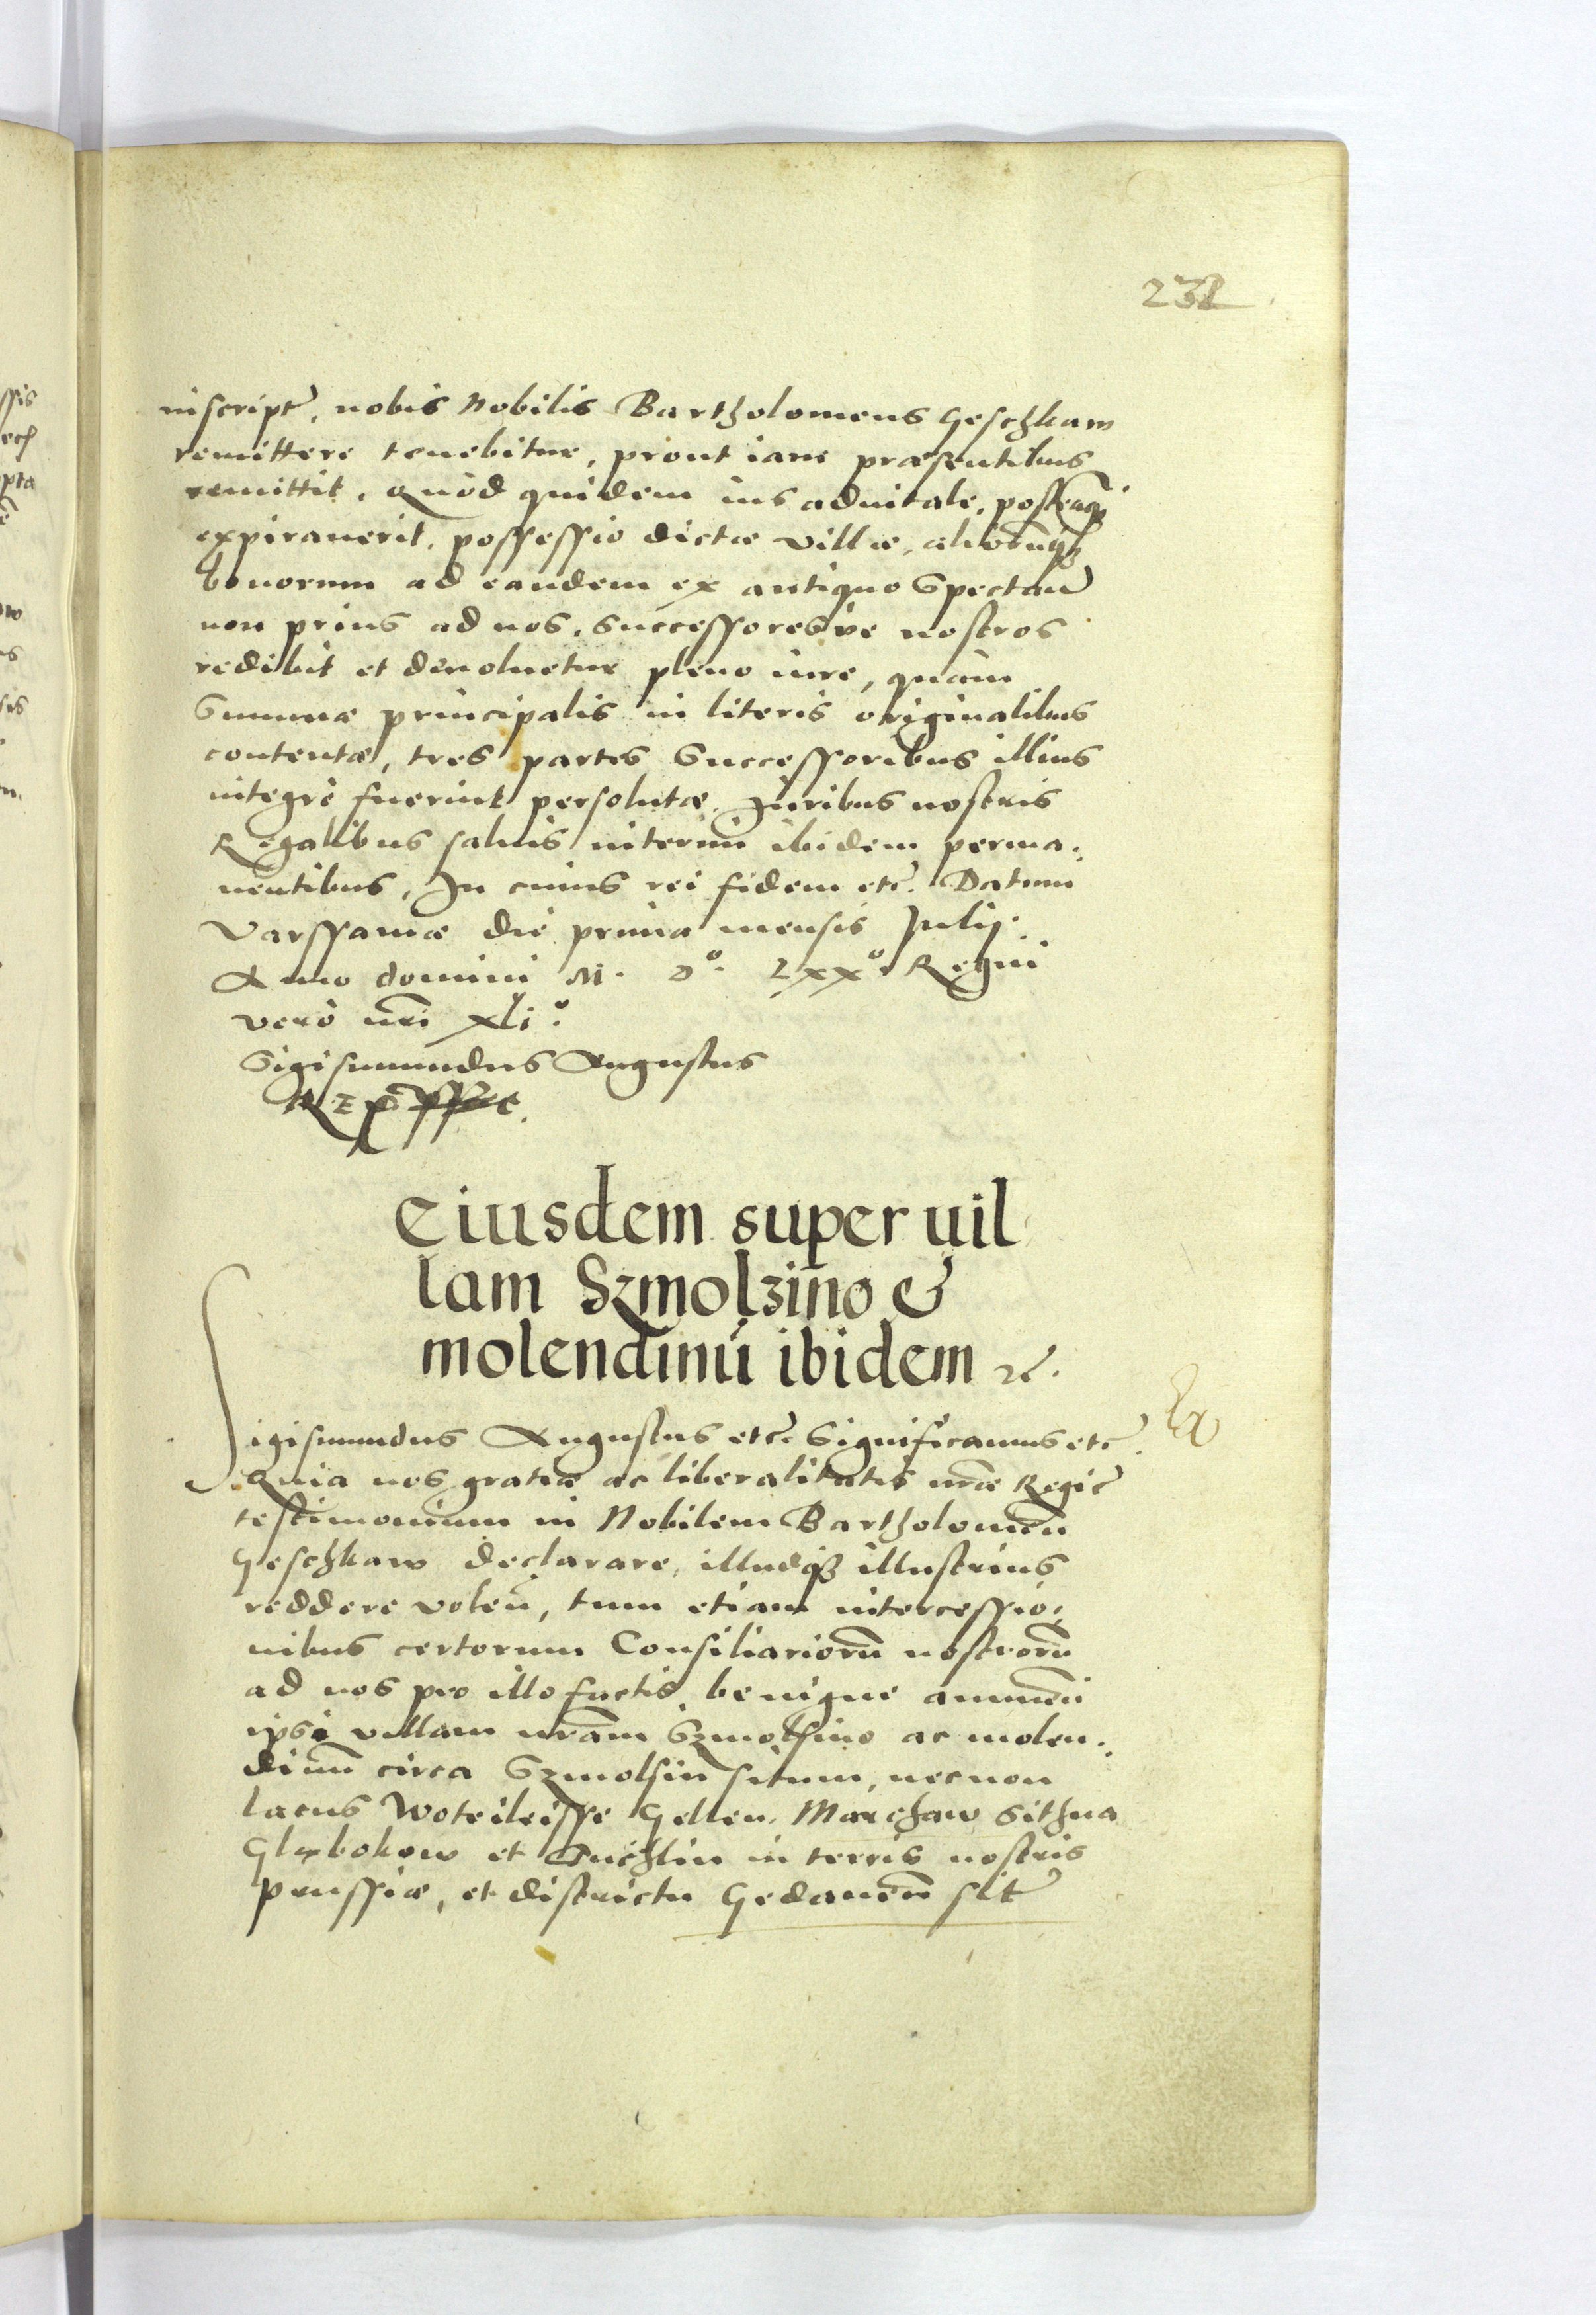 232
inscript, nobis Nobilis Bartholomeus Geschkaw
remittere tenebitur, prout iam præsentibus
remittit. Quod quidem ius aduitale, posteaq
expirauerit, possessio dictæ villæ, aliorumqȝ
bonorum ad eandem ex antiquo spectan
non prius ad nos, successoresve nostros
redibit et deuoluetur pleno iure, quàm
summæ principalis in literis originalibus
contentæ, tres partes successoribus illius
integrè fuerint persolutæ. Juribus nostris
Regalibus saluis interim ibidem perma:
nentibus, In cuius rei fidem etc. Datum
Varssauiæ die prima mensis Julij.
Anno domini M. D°. Lxx°. Regni
verò nri xli°.
Sigismundus Augustus
REX
Eiusdem super uil
lam Szmolzino &
molendinū ibidem ꝛc.
Sigismundus Augustus etc. Significamus etc.
Quia nos gratiæ ac liberalitatis nræ Regiæ
testimonium in Nobilem Bartholomeū
Geschkaw declarare, illudqȝ illustrius
reddere volen, tum etiam intercessio:
nibus certorum Consiliariorū nostrorū
ad nos pro illo factis, benigne annuen
ipsi villam nram Szmolsino ac molen:
dinū circa Szmolsin situm, necnon
lacus Woteileisse Gellen, Marchaw Sithna
Glębokow et Suchlin in terris nostris
Prussiæ, et districtu Gedanen sit